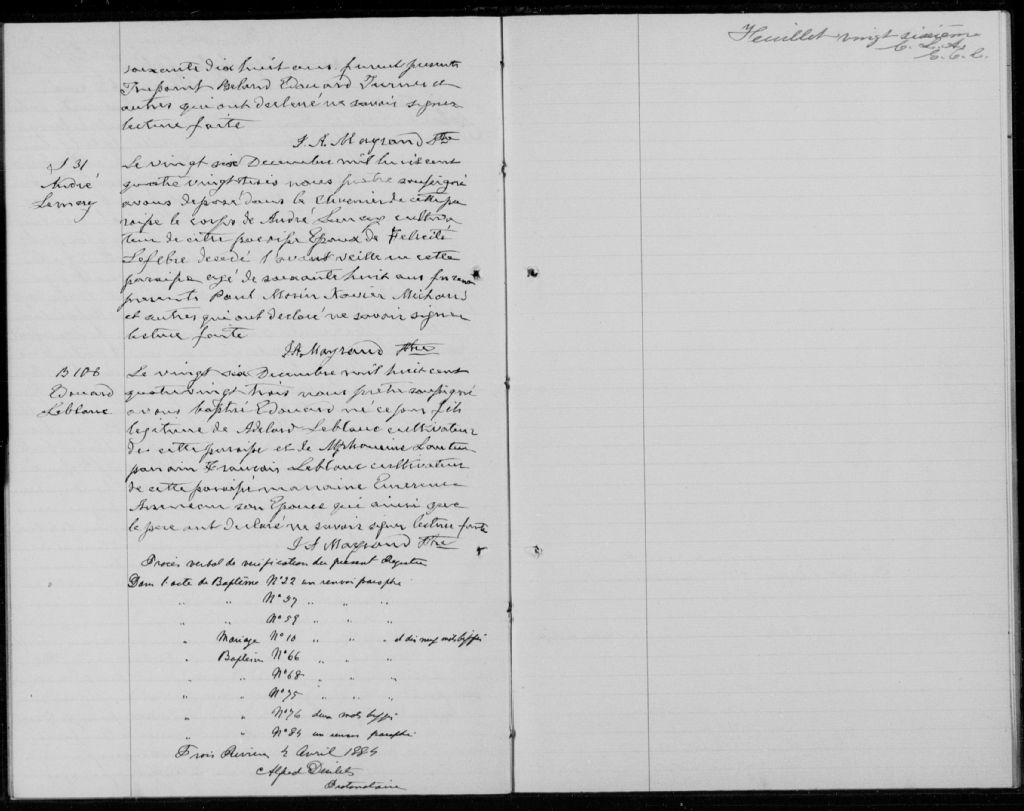 soixante dix huit ans furent présents
Béland Edouard Turner et
autres qui ont declaré ne savoir signer
lecture faite
J. A. Mayrand Ptre
S 31
André
Lemay
Le vingt six Decembre mil huit cent
quatre vingt trois nous prêtre soussigné
avons déposé dans le de cette pa
roisse le corps de André Lemay cultiva
teur de cette paroisse Epoux de Félicité
Lefebre decedé l'avant veille en cette
paroisse agé de soixante huit ans furent
presents Paul Morin Xavier Michaud
et autres qui ont declaré ne savoir signer
lecture faite
J A Mayrand Ptre
B 108
Edouard
Leblanc
Le vingt six Decembre mil huit cent
quatre vingt trois nous prêtre soussigné
avons baptisé Edouard né ce jour fils
legitime de Adelard Leblanc cultivateur
de cette paroisse et de
parrain François Leblanc cultivateur
de cette paroisse marraine
son Epouse qui ainsi que
le pere ont declaré ne savoir signer lecture faite
J A Mayrand Ptre
Procès verbal de vérification du présent Registre
Dans l'acte de Baptême No 22 un renvoi paraphé
" " No 37 " " "
" " No 59 " " "
" Mariage No 10 " " " et dix neuf mots biffés
" Baptême No 66 " " "
" " No 68 " " "
" " No 75 " " "
" " No 76 deux mots biffés
" " No 84 un renvoi paraphé
Trois Rivières 2 Avril 1884
Alfred Désilets
Protonotaire
Feuillet vingt sixième